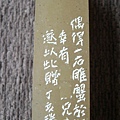 偶得一石雕蟹於
幸有 兄
遂以此贈丁亥